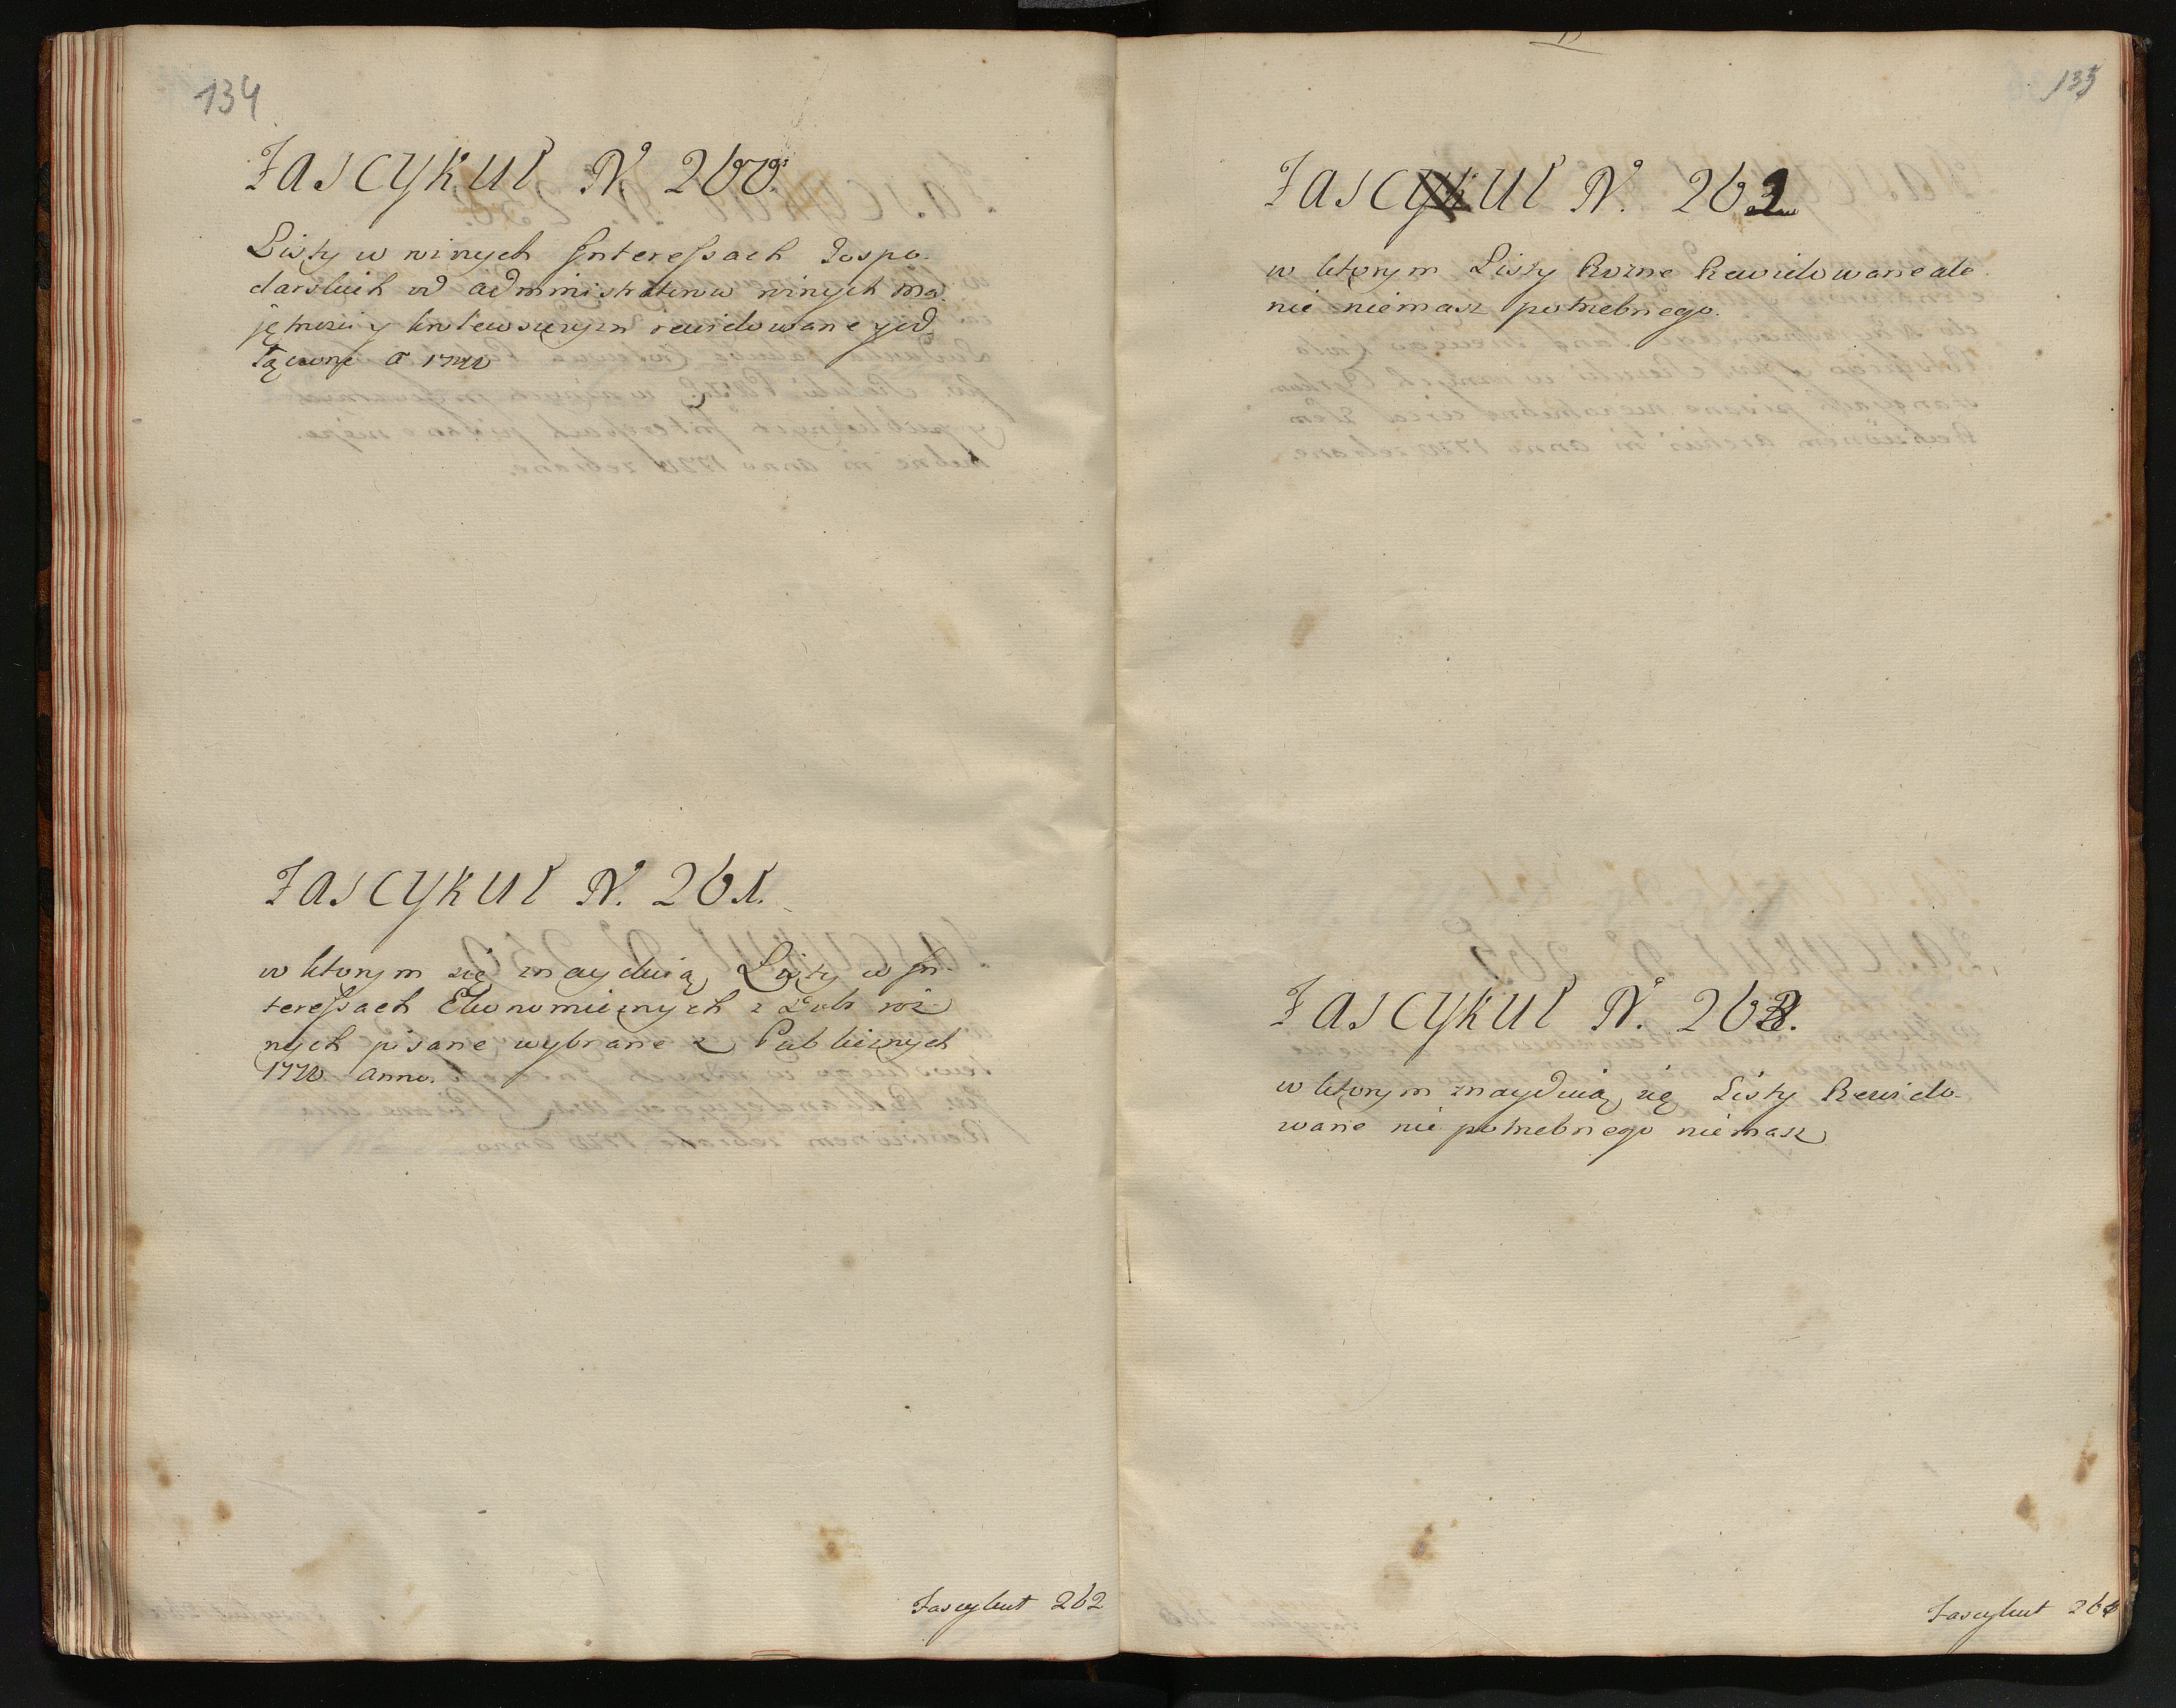 134
Fascykuł N. 260.
Listy w roznych Interessach Gospo-
darskich od administratorow roznych ma-
jętnosci y krolewszczyzn rewidowane y od-
łączone A 1720
Fascykuł N. 261.
w ktorym się znayduią Listy w In-
teressach Ekonomicznych z Dobr roż-
nych pisane wybrane z Publicznych
1720 anno.
Fascykuł 262
135
Fascykuł N. 262
w ktorym Listy Rozne Rewidowane ale
nic niemasz potrzebnego.
Fascykuł N. 263.
w ktorym znayduią się Listy Rewido-
wane nic potrzebnego niemasz
Fascykuł 264